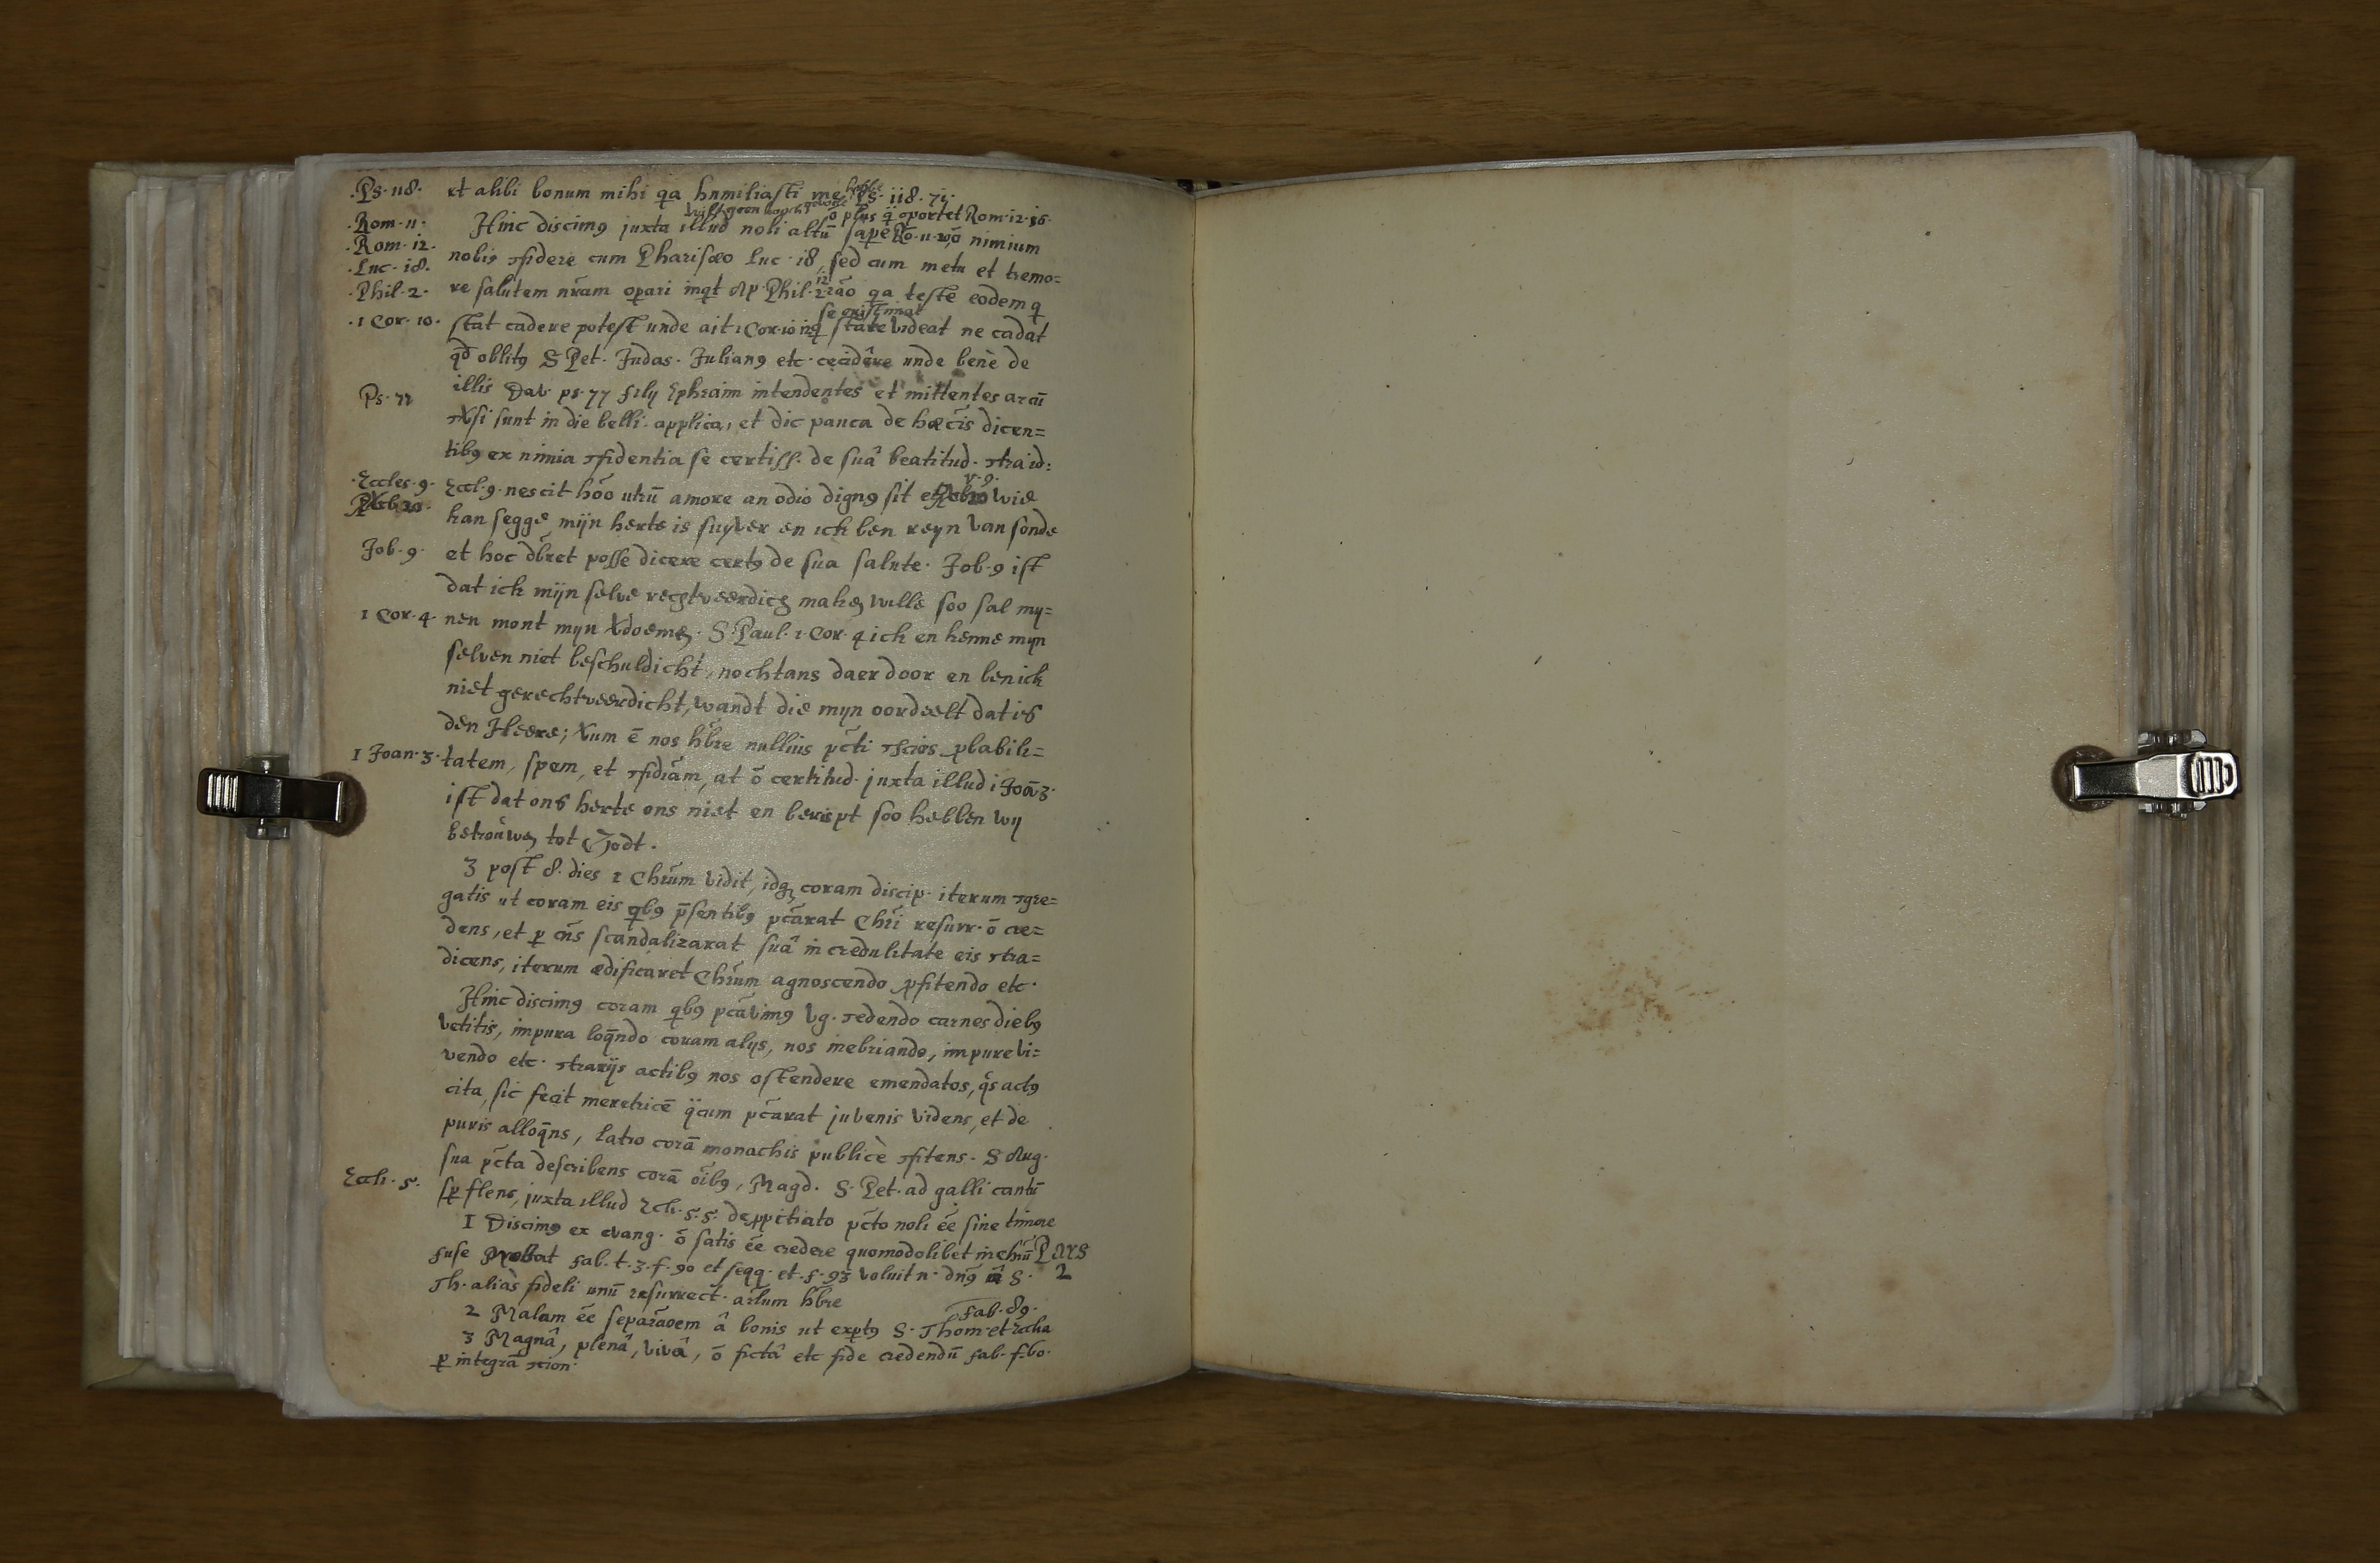 ·Ps· 118· et alibi bonum mihi qa humiliasti me Ps· 118· 71·
ō plus q̄ oportet Rom· 12· 16·
·Rom· 11· Hinc discimꝰ juxta illud noli altū sapere Ro· 11· nimium
·Rom· 12·
·Luc· 18· nobis ꝯfidere cum Pharisæo Luc· 18, sed cum metu et tremo=
·Phil· 2· re salutem nr̄am operari inqt Ap· Phil· 2 12 qa teste eodem q
se existimat
·1 Cor· 10· stat cadere potest unde ait 1 Cor· 10 12 q stare videat ne cadat
qd̄ oblitꝰ S Pet· Judas· Julianꝰ etc· cecidêre unde benè de
Ps· 77 illis Dav· ps· 77 filij Ephraim intendentes et mittentes arcū
ꝯXsi sunt in die belli· applica, et dic pauca de hæcis dicen=
tibꝰ ex nimia ꝯfidentia se certiss· de suâ beatitud· ꝯtra id:
·Eccles· 9· Eccl· 9· nescit hōo utrū amore an odio dignꝰ sit et wie
kan segge mijn herte is suyver en ick ben reyn van sonde
Job· 9· et hoc dbret posse dicere certꝰ de sua salute· Job· 9 ist
dat ick mijn selve rechtveerdich maken wille soo sal my=
1 Cor· 4· nen mont myn Xdoemen· S· Paul· 1· Cor· 4 ick en kenne myn
selven niet beschuldicht, nochtans daer door en ben ick
niet gerechtveerdicht, wandt die myn oordeelt dat is
den Heere; Xum ē nos hbre nullius pcti ꝯscios ꝓbabili=
1 Joan· 3· tatem, spem, et ꝯfidiam, at ō certitud· juxta illud 1 Joā 3·
ist dat ons herte ons niet en berispt soo hebben wy
betrouwen tot Godt·
3 post 8· dies 1 Chrum vidit, idq coram discip· iterum ꝯgre=
gatis ut coram eis qbꝰ p̄sentibꝰ pcārat Chri resurr· ō cre=
dens, et ꝑ cn̄s scandalizarat suâ incredulitate eis ꝯtra=
dicens, iterum ædificaret Chrum agnoscendo ꝓfitendo etc·
Hinc discimꝰ coram qbꝰ pcavimꝰ vg· ꝯedendo carnes diebꝰ
vetitis, impura loqndo coram alijs, nos inebriando, impure vi=
vendo etc· ꝯtrarijs actibꝰ nos ostendere emendatos, qs actꝰ
cita, sic fecit meretricē qcum pcārat juvenis videns, et de
puris alloqns, latro corā monachis publicè ꝯfitens· S Aug·
sua pcta describens corā oibꝰ, Magd· S· Pet· ad galli cantū
Eccli· 5· sꝑ flens, juxta illud Ecli· 5· 5· de ꝓpitiato pcto noli ēe sine timore
1 Discimꝰ ex evang· ō satis ēe credere quomodolibet in chrū Pars
fuse probat fab· t· 3· f· 90 et seqq· et f· 93 voluit n· dnꝰ S· 2
Th· alias fideli unū resurrect· artlum hbre
2 Malam ēe separaoem â bonis ut expertꝰ S· Thom· et Fab· 89·
3 Magnâ, plenâ, vivâ, ō fictâ etc fide credendū fab· f· 60·
ꝑ integrā